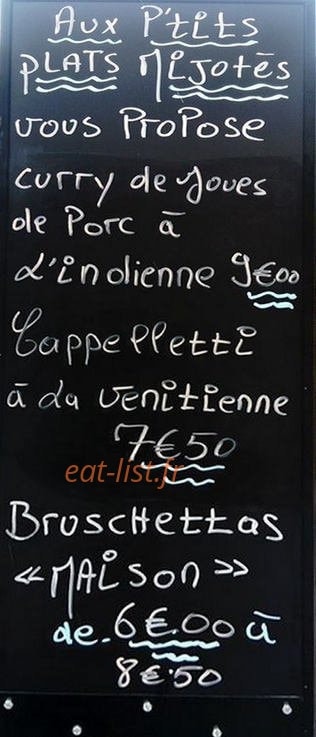 Aux P'tits
PLATS Mijotés
vous ProPose
curry de Joues
de Porc à
L'indienne 9€00
Cappelletti
à La venitienne
7€50
eat-list.fr
BruscHettas
« MAison »
de 6€.00 à
8€.50